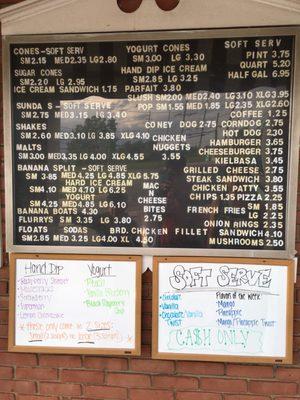 CONES-SOFT SERV
SM 2.15 MED 2.35 LG 2.80
SUGAR CONES
SM 2.20 LG 2.95
ICE CREAM SANDWICH 1.75
SUNDA S - SOFT SERVE
SM 2.75 MED 3.15 L 3.40
SHAKES
SM 2.60 MED 3.10 LG 3.85 XLG 4.10
MALTS
SM 3.00 MED 3.35 LG 4.00 XLG 4.55
BANANA SPLIT - SOFT SERVE
SM 3.85 MED 4.25 LG 4.85 XLG 5.75
HARD ICE CREAM
SM 4.10 MED 4.70 LG 6.25
YOGURT
SM 4.25 MED 4.85 LG 6.10
BANANA BOATS 4.30
FLURRYS SM 3.35 LG 3.80
FLOATS SODAS
SM 2.85 MED 3.25 LG 4.00 XL 4.50
YOGURT CONES
SM 3.00 LG 3.30
HAND DIP ICE CREAM
SM 2.85 LG 3.25
PARFAIT 3.80
SLUSH SM 2.00 MED 2.40 LG 3.10 XLG 3.95
POP SM 1.55 MED 1.85 LG 2.35 XLG 2.60
CONEY DOG 2.75
CHICKEN
NUGGETS
3.55
MAC
N
CHEESE
BITES
2.75
BRD. CHICKEN FILLET SANDWICH 4.10
SOFT SERV
PINT 3.75
QUART 5.20
HALF GAL 6.95
COFFEE 1.25
CORNDOG 2.75
HOT DOG 2.30
HAMBURG 3.65
CHEESEBURG 3.75
KIELBASA 3.45
GRILLED CHEESE 2.75
STEAK SANDWICH 3.80
CHICKEN PATTY 3.55
CHIPS 1.35 PIZZA 2.25
FRENCH FRIES SM 1.85
LG 2.25
ONION RINGS 2.35
MUSHROOMS 2.50
Hand Dip
Yogurt
SOFT SERVE
Chocolate
Vanilla
Chocolate Vanilla
Twist
Flavor of the Week:
Mango
Pineapple
Mango/Pineapple Twist
CASH ONLY